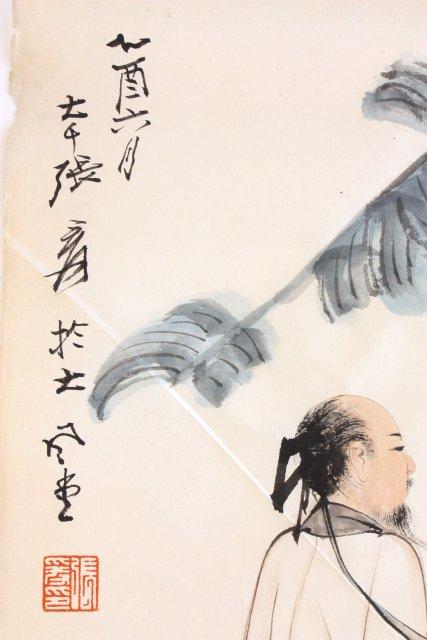 乙酉六月
大千張爰於大風堂